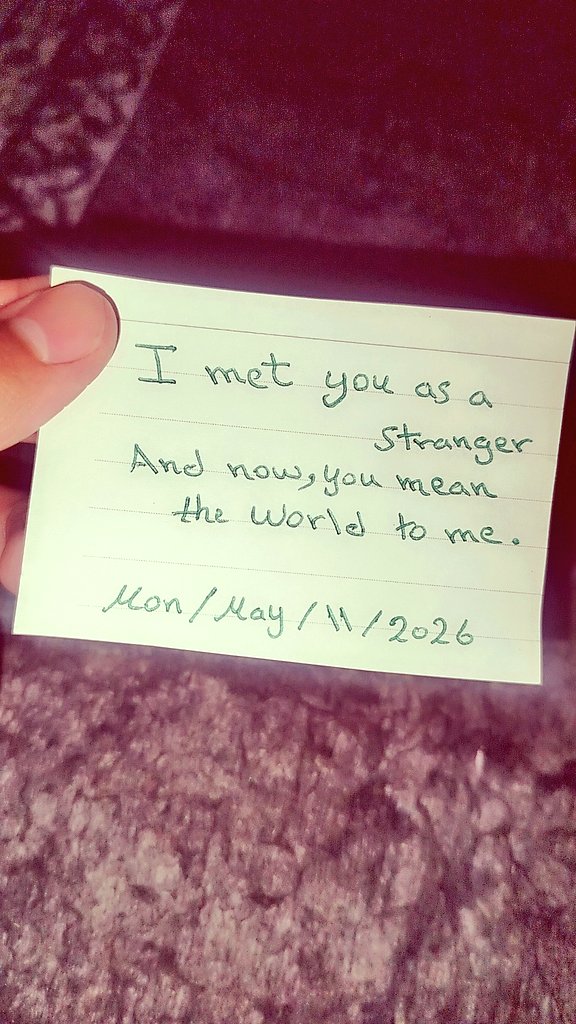 I met you as a
stranger
And now, you mean
the world to me.
Mon/May/11/2026